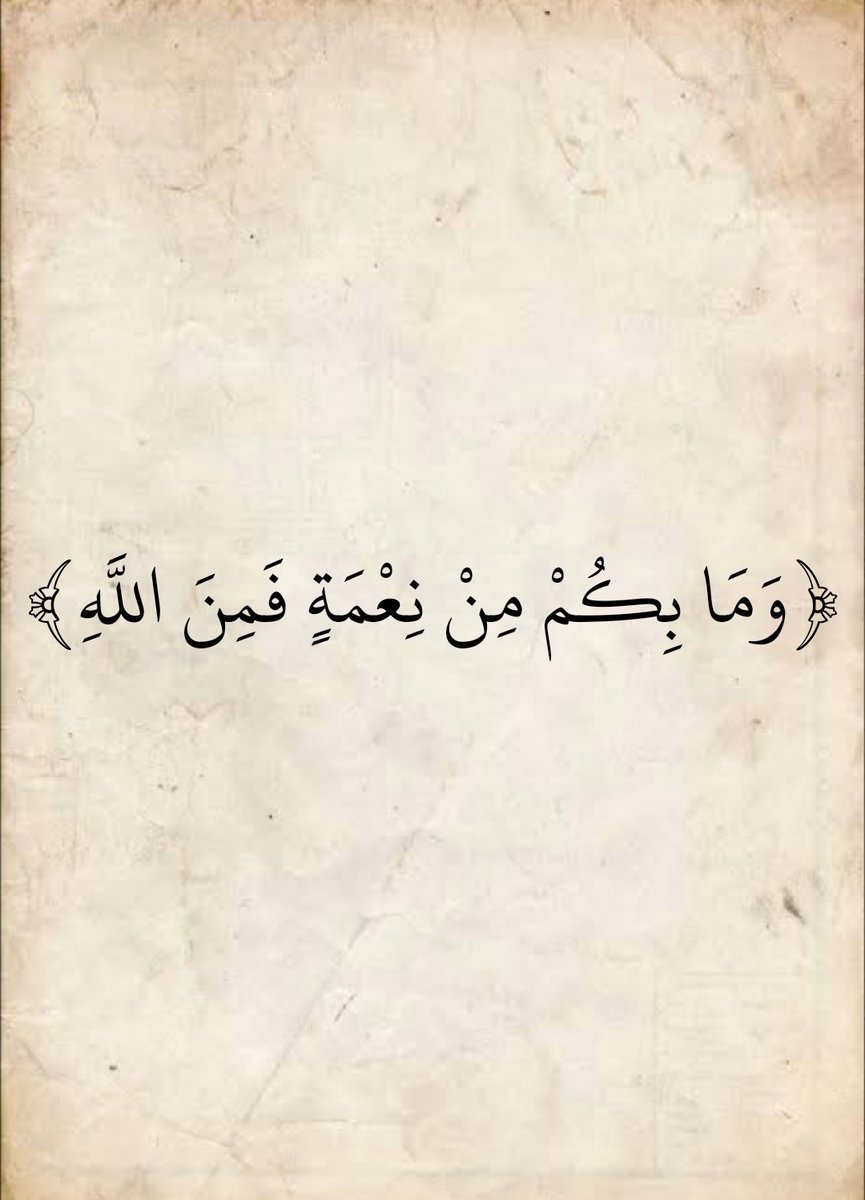 ﴿وَمَا بِكُمْ مِنْ نِعْمَةٍ فَمِنَ اللَّهِ﴾